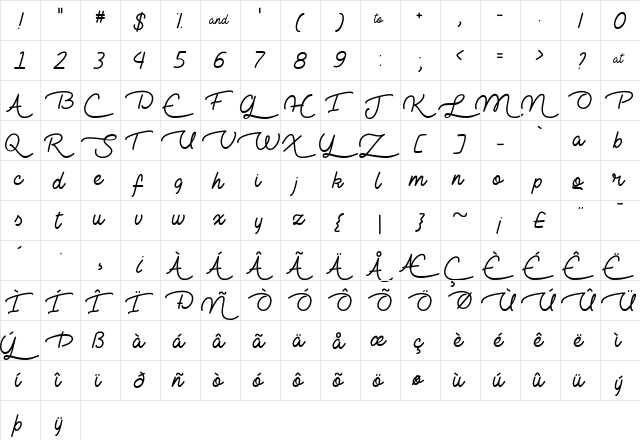 ! " # $ % and ' ( ) to + , - . / 0
1 2 3 4 5 6 7 8 9 : ; < = > ? at
A B C D E F G H I J K L M N O P
Q R S T U V W X Y Z [ ] _ ` a b
c d e f g h i j k l m n o p q r
s t u v w x y z { | } ~ ¡ £ ¨ ¯
´ · ¸ ¿ À Á Â Ã Ä Å Æ Ç È É Ê Ë
Ì Í Î Ï Ð Ñ Ò Ó Ô Õ Ö Ø Ù Ú Û Ü
Ý Þ ß à á â ã ä å æ ç è é ê ë ì
í î ï ð ñ ò ó ô õ ö ø ù ú û ü ý
þ ÿ